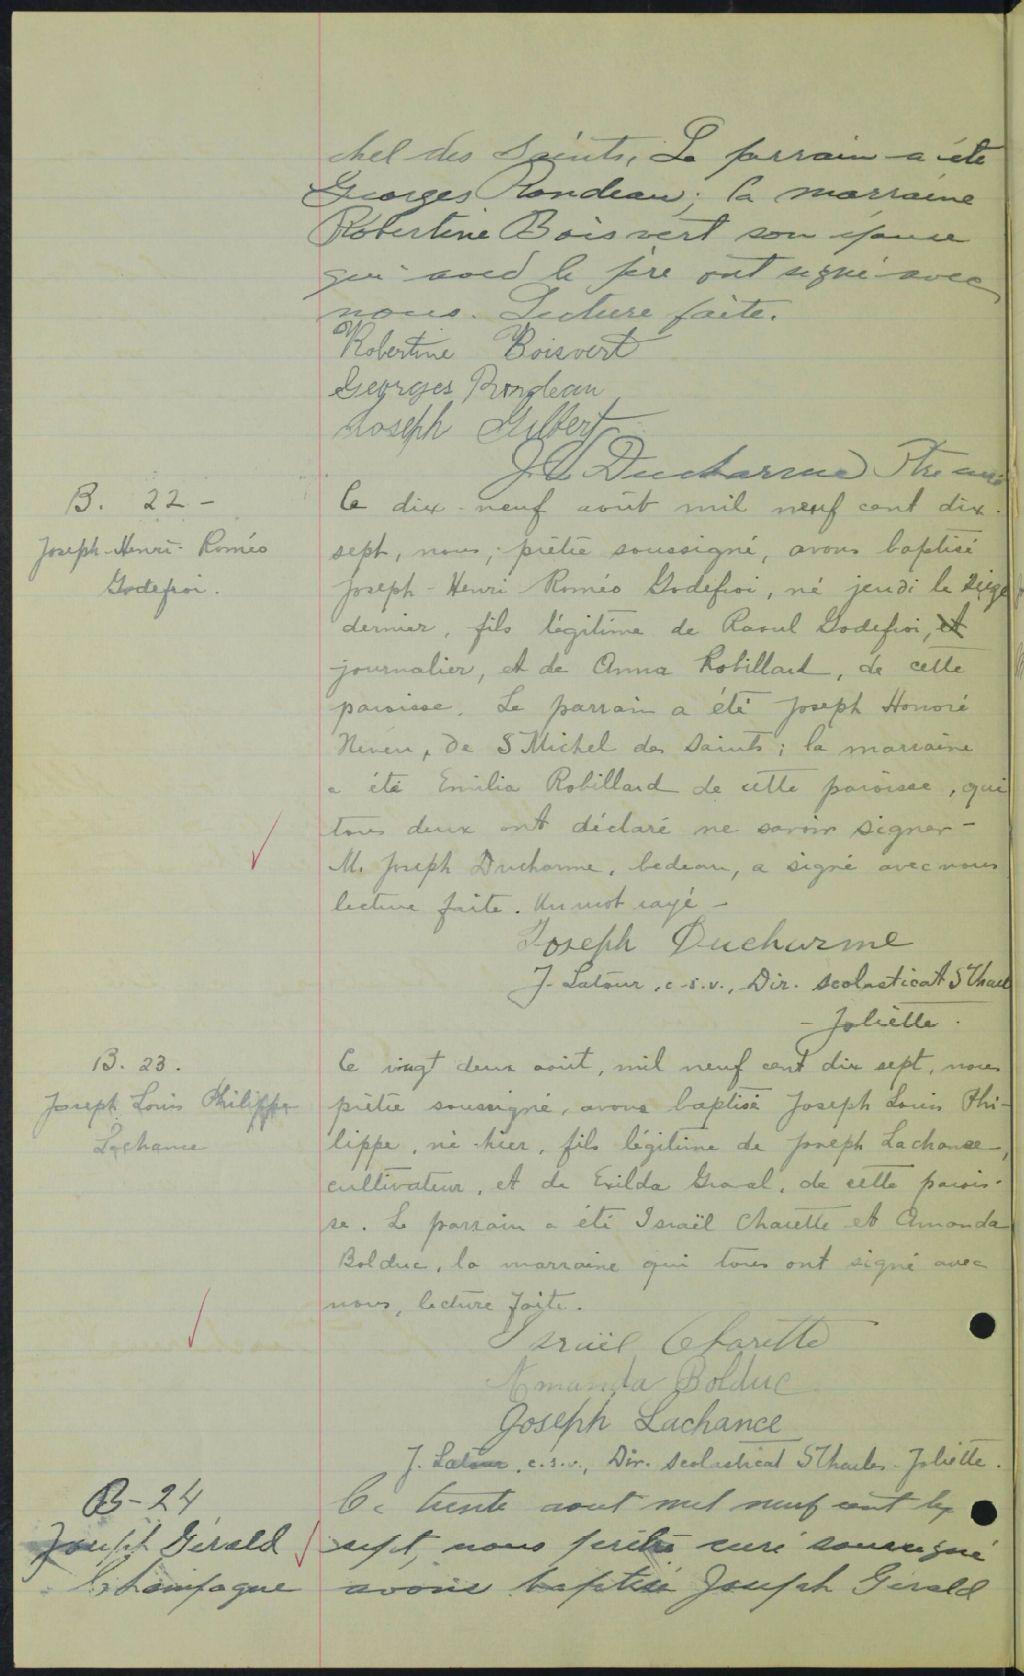 chel des Saints. Le parrain a été
Georges Rondeau; la marraine
Robertine Boisvert son épouse
qui avec le père ont signé avec
nous. Lecture faite.
Robertine Boisvert
Georges Rondeau
Joseph Gilbert
Ducharme Ptre curé
B. 22 -
Joseph-Henri-Roméo
Godefroi.
Ce dix-neuf août mil neuf cent dix-
sept, nous, prêtre soussigné, avons baptisé
Joseph-Henri Roméo Godefroi, né jeudi le seize
dernier, fils légitime de Raoul Godefroi, et
journalier, et de Anna Robillard, de cette
paroisse. Le parrain a été Joseph Honoré
Neveu, de S Michel des Saints; la marraine
a été Emilia Robillard de cette paroisse, qui
tous deux ont déclaré ne savoir signer -
M. Joseph Ducharme, bedeau, a signé avec nous
lecture faite. Un mot rayé -
Joseph Ducharme
J. Latour, c.s.v., Dir. Scolasticat S
- Joliette.
B. 23.
Joseph Louis Philippe
Lachance
Ce vingt deux août, mil neuf cent dix sept, nous
prêtre soussigné, avons baptisé Joseph Louis Phi-
lippe, né hier, fils légitime de Joseph Lachance,
cultivateur, et de Exilda Gravel, de cette parois-
se. Le parrain a été Israël Charette et Amanda
Bolduc, la marraine qui tous ont signé avec
nous, lecture faite.
Israël Charette
Amanda Bolduc
Joseph Lachance
J. Latour, c.s.v., Dir. Scolasticat S Charles-Joliette.
B-24
Joseph Gérald
Champagne
Ce trente aout mil neuf cent dix
sept, nous prêtre curé soussigné
avons baptisé Joseph Gérald